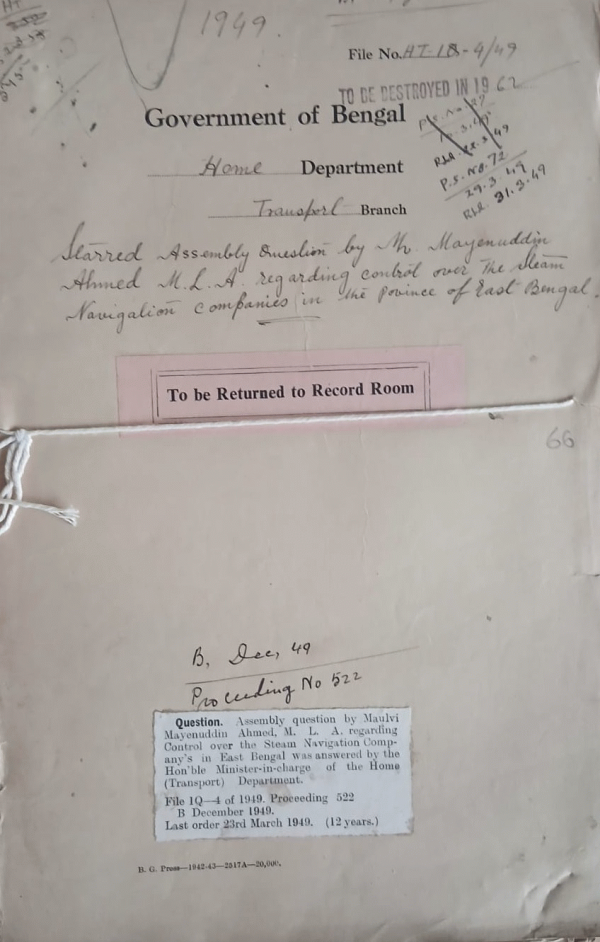 1949.
File No. HT-1Q-4/49
TO BE DESTROYED IN 1962
Government of Bengal
Home Department
P.S. No. 72
29.3.49
RLR. 31.3.49
Transport Branch
Starred Assembly Question by Mr. Mayenuddin
Ahmed M.L.A. regarding control over the Steam
Navigation Companies in the Povince of East Bengal.
To be Returned to Record Room
66
B, Dec, 49
Proceeding No 522
Question. Assembly question by Maulvi
Mayenuddin Ahmed, M. L. A. regarding
Control over the Steam Navigation Comp-
any's in East Bengal was answered by the
Hon'ble Minister-in-charge of the Home
(Transport) Department.
File 1Q—4 of 1949. Proceeding 522
B December 1949.
Last order 23rd March 1949. (12 years.)
B. G. Press—1942-43—2517A—20,000.